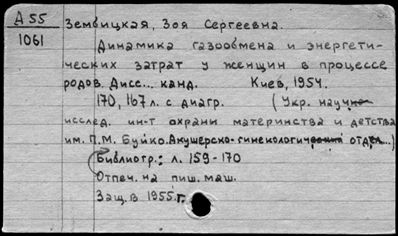 А 55
1061
Зембицкая, Зоя Сергеевна.
Динамика газообмена и энергети-
ческих затрат у женщин в процессе
родов. Дисс... канд. Киев, 1954.
170, 167 л. с диагр. (Укр. научно-
исслед. ин-т охраны материнства и детства
им. П.М. Буйко. Акушерско-гинекологический отдел...)
Библиогр.: л. 159-170
Отпеч. на пиш. маш.
Защ. в 1955 г.